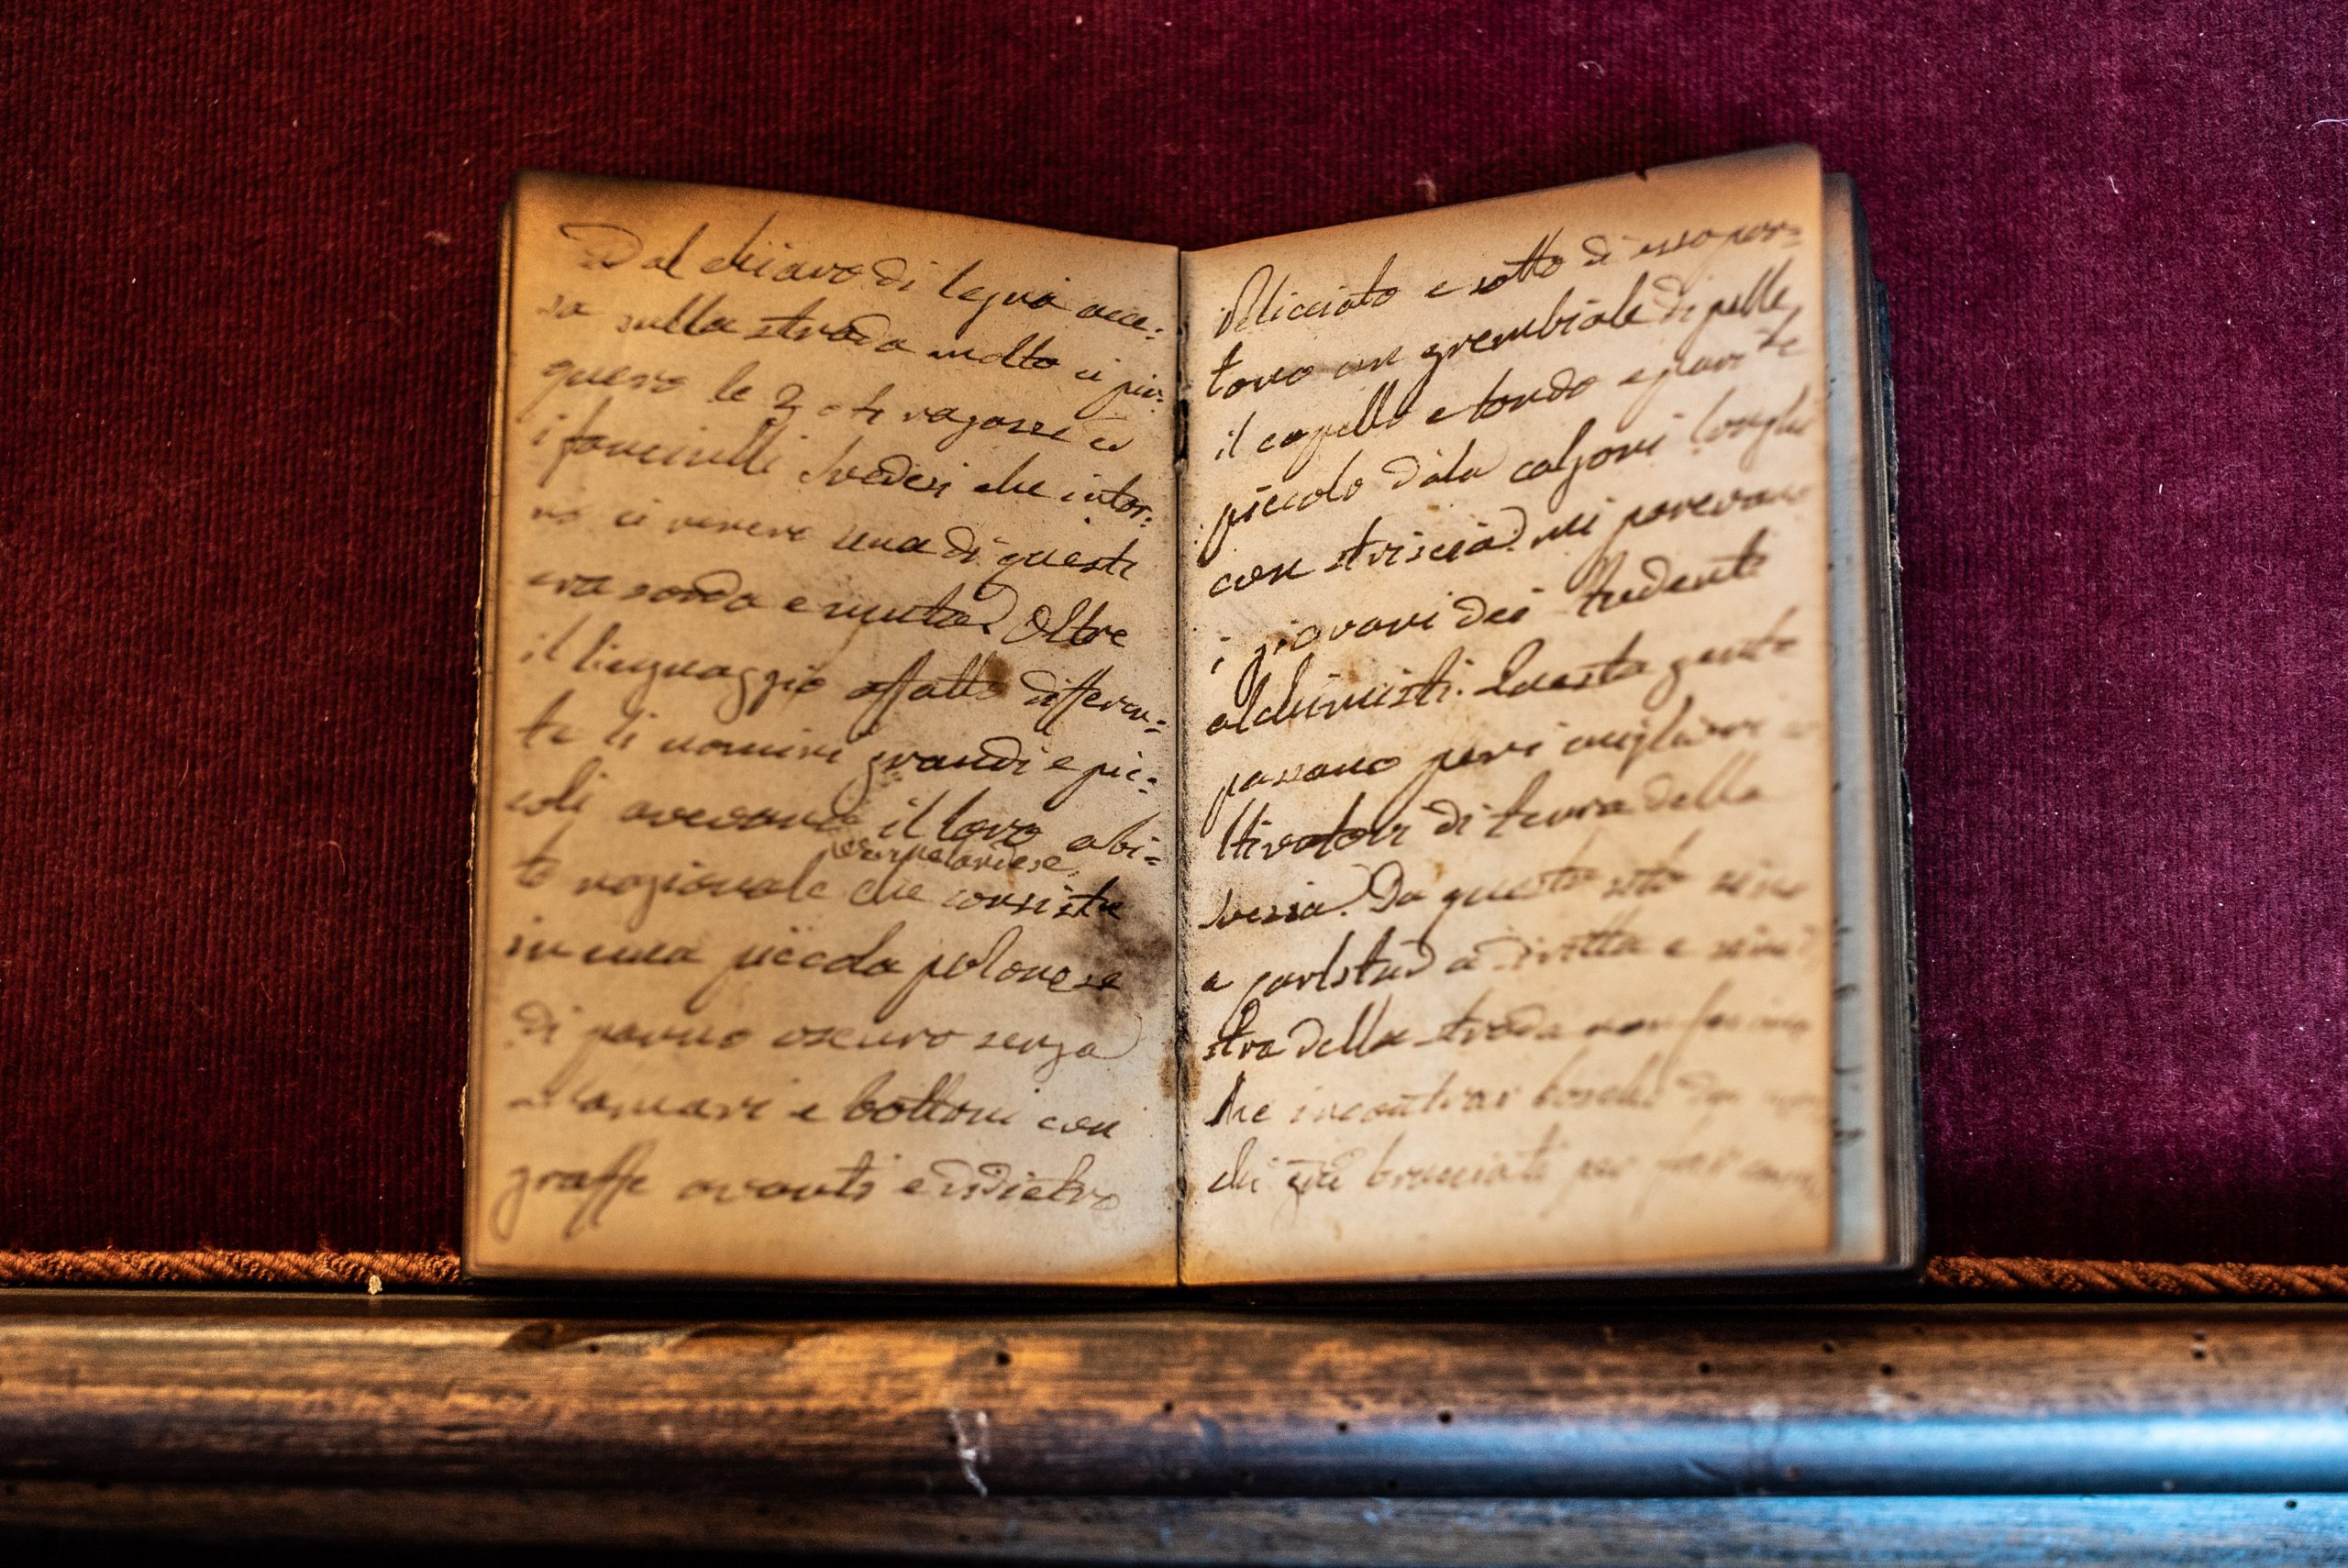 Dal chiaro di legna acce:
sa sulla strada molto ci pia:
quero le 2 ragazze ed
i fanciulli Svedesi che intor:
no ci venere una di queste
era sorda e muta. Oltre
il linguaggio affatto differen=
te li uomini grandi e pic=
coli avevano il loro abi=
to nazionale che consiste
in una piccola polonese
di panno oscuro senza
alamari e bottoni con
graffe avanti e indietro
Pelicciato e sotto di esso por=
tano un grembiale di pelle
il capello e tondo e
piccolo d'ala calzoni longhi
con striscia. mi parevano
i giovani dei studenti
alchimisti. Questa gente
passano per i migliori
ltivatori di terra della
Svezia. Da questo sito sino
a Carlstad a diritta e sini
stra della strada non
che incontrar boschi
chi già bruciati per far